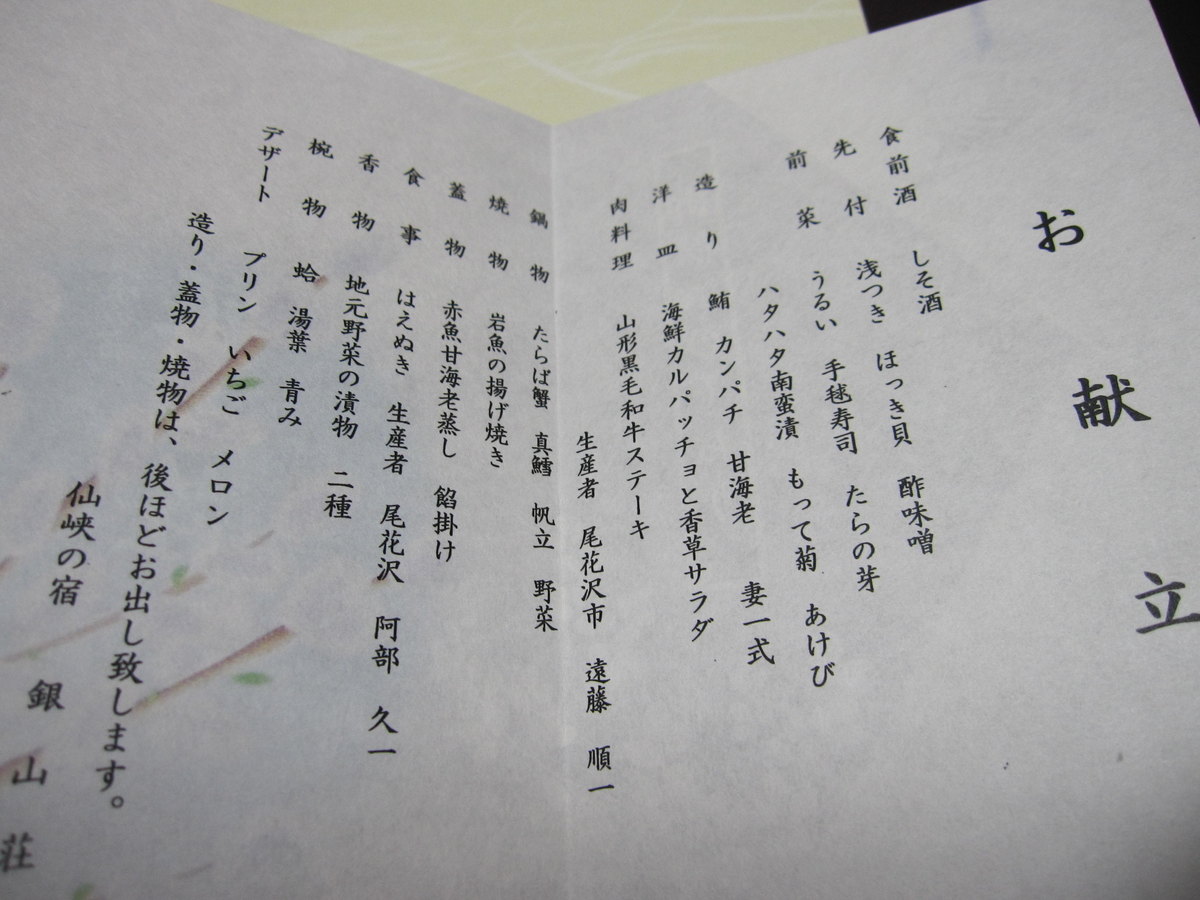 お献立
食前酒 しそ酒
先付 浅つき ほっき貝 酢味噌
前菜 うるい 手毬寿司 たらの芽
ハタハタ南蛮漬 もって菊 あけび
造り 鮪 カンパチ 甘海老 妻一式
洋皿 海鮮カルパッチョと香草サラダ
肉料理 山形黒毛和牛ステーキ
生産者 尾花沢市 遠藤 順一
鍋物 たらば蟹 真鱈 帆立 野菜
焼物 岩魚の揚げ焼き
蓋物 赤魚甘海老蒸し 餡掛け
食事 はえぬき 生産者 尾花沢 阿部 久一
香物 地元野菜の漬物 二種
椀物 蛤 湯葉 青み
デザート プリン いちご メロン
造り・蓋物・焼物は、後ほどお出し致します。
仙峡の宿 銀山荘